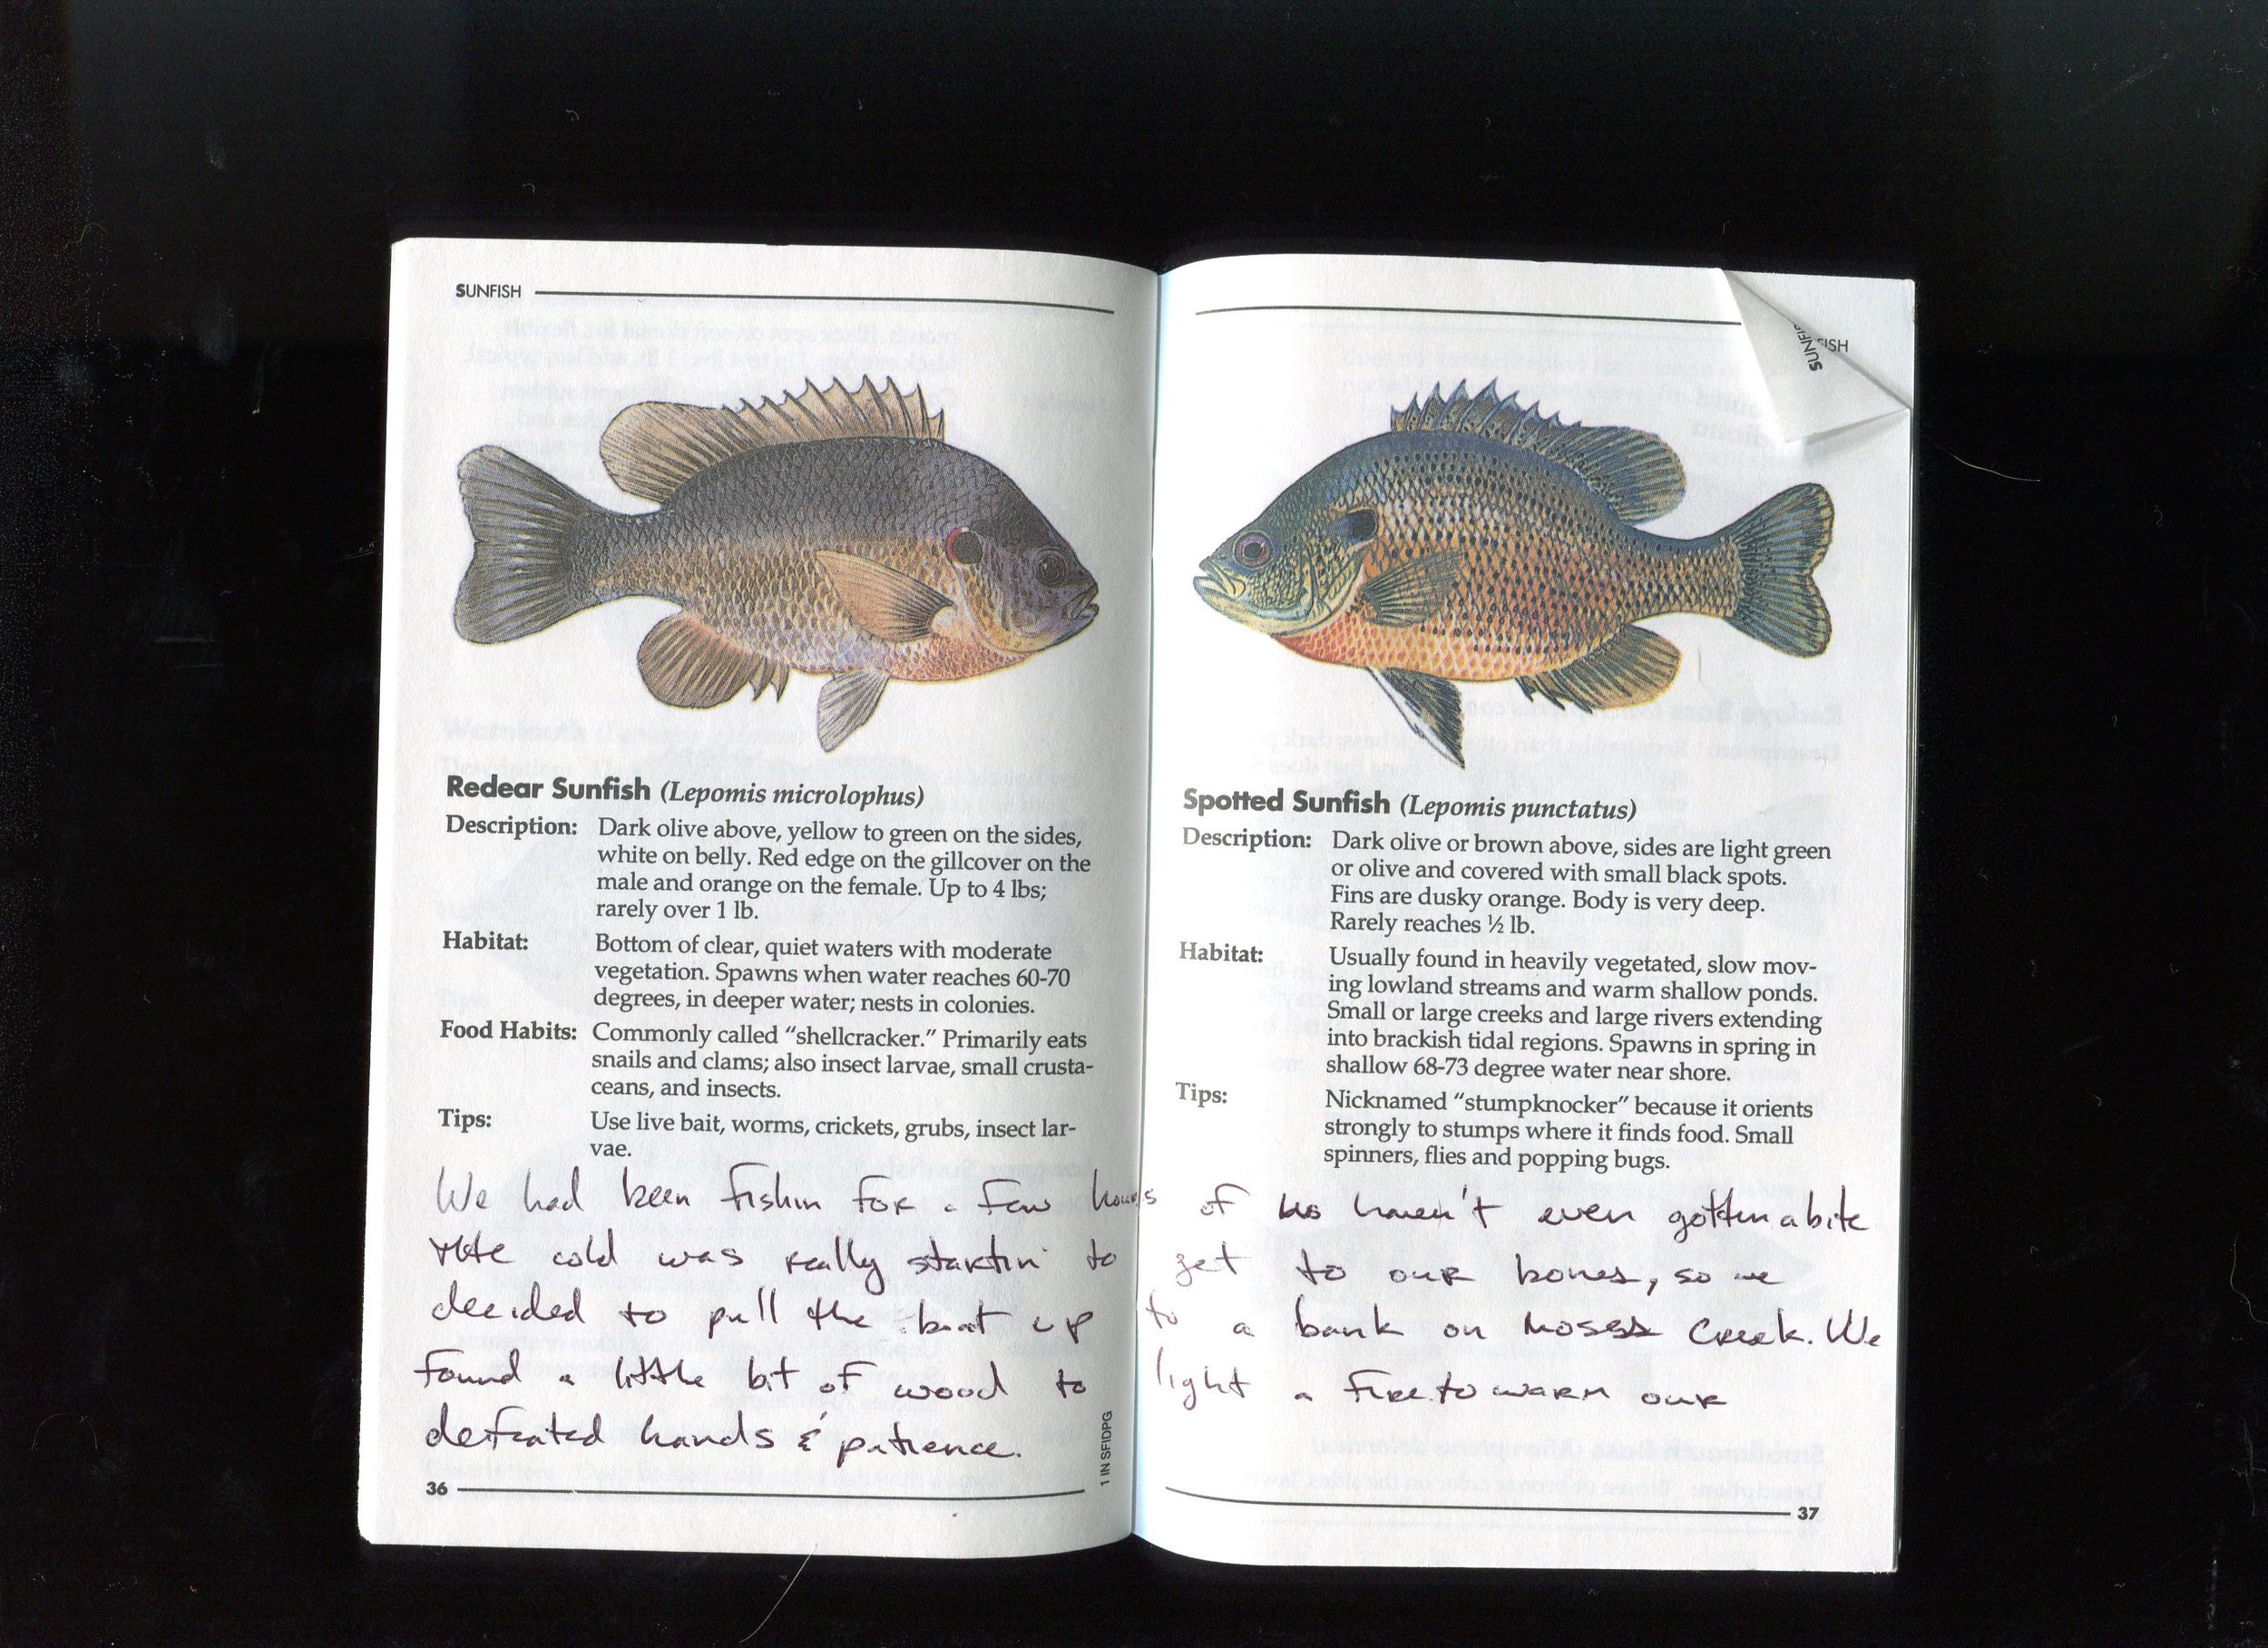 SUNFISH
Redear Sunfish (Lepomis microlophus)
Description: Dark olive above, yellow to green on the sides,
white on belly. Red edge on the gillcover on the
male and orange on the female. Up to 4 lbs;
rarely over 1 lb.
Habitat: Bottom of clear, quiet waters with moderate
vegetation. Spawns when water reaches 60-70
degrees, in deeper water; nests in colonies.
Food Habits: Commonly called “shellcracker.” Primarily eats
snails and clams; also insect larvae, small crusta-
ceans, and insects.
Tips: Use live bait, worms, crickets, grubs, insect lar-
vae.
SUNFI
ISH
Spotted Sunfish (Lepomis punctatus)
Description: Dark olive or brown above, sides are light green
or olive and covered with small black spots.
Fins are dusky orange. Body is very deep.
Rarely reaches ½ lb.
Habitat: Usually found in heavily vegetated, slow mov-
ing lowland streams and warm shallow ponds.
Small or large creeks and large rivers extending
into brackish tidal regions. Spawns in spring in
shallow 68-73 degree water near shore.
Tips: Nicknamed “stumpknocker” because it orients
strongly to stumps where it finds food. Small
spinners, flies and popping bugs.
We had been fishin for a few hours of us haven't even gotten a bite
the cold was really startin to get to our bones, so we
decided to pull the boat up to a bank on Moses Creek. We
found a little bit of wood to light a fire to warm our
defeated hands & patience.
1 IN SFIDPG
36
37